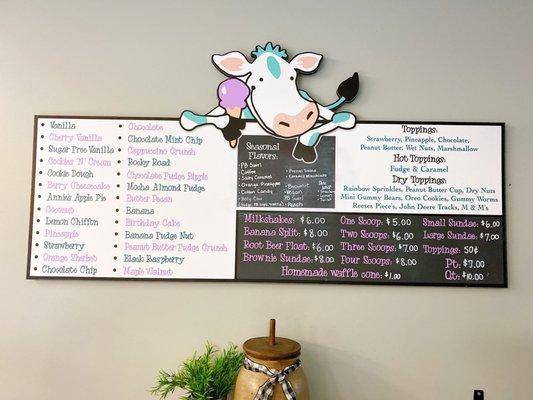 Vanilla
Cherry Vanilla
Sugar Free Vanilla
Cookies 'N' Cream
Cookie Dough
Berry Cheesecake
Annie's Apple Pie
Coconut
Lemon Chiffon
Pineapple
Strawberry
Orange Sherbet
Chocolate Chip
Chocolate
Mint Chocolate Chip
Cappuccino Crunch
Rocky Road
Chocolate Fudge Ripple
Mocha Almond Fudge
Butter Pecan
Banana
Birthday Cake
Banana Fudge Nut
Peanut Butter Fudge Crunch
Black Raspberry
Maple Walnut
Seasonal
Flavors:
PB Swirl
Coffee
Salty Caramel
Orange Pineapple
Cotton Candy
Holy Cow
Toppings:
Strawberry, Pineapple, Chocolate,
Peanut Butter, Wet Nuts, Marshmallow
Hot Toppings:
Fudge & Caramel
Dry Toppings:
Rainbow Sprinkles, Peanut Butter Cup, Dry Nuts
Mini Gummy Bears, Oreo Cookies, Gummy Worms
Reeses Piece's, John Deere Tracks, M & M's
Milkshakes: $6.00
Banana Split: $8.00
Root Beer Float: $6.00
Brownie Sundae: $8.00
One Scoop: $5.00
Two Scoops: $6.00
Three Scoops: $7.00
Four Scoops: $8.00
Homemade waffle cone: $1.00
Small Sundae: $6.00
Large Sundae: $7.00
Toppings: 50¢
Pt: $7.00
Qt: $10.00